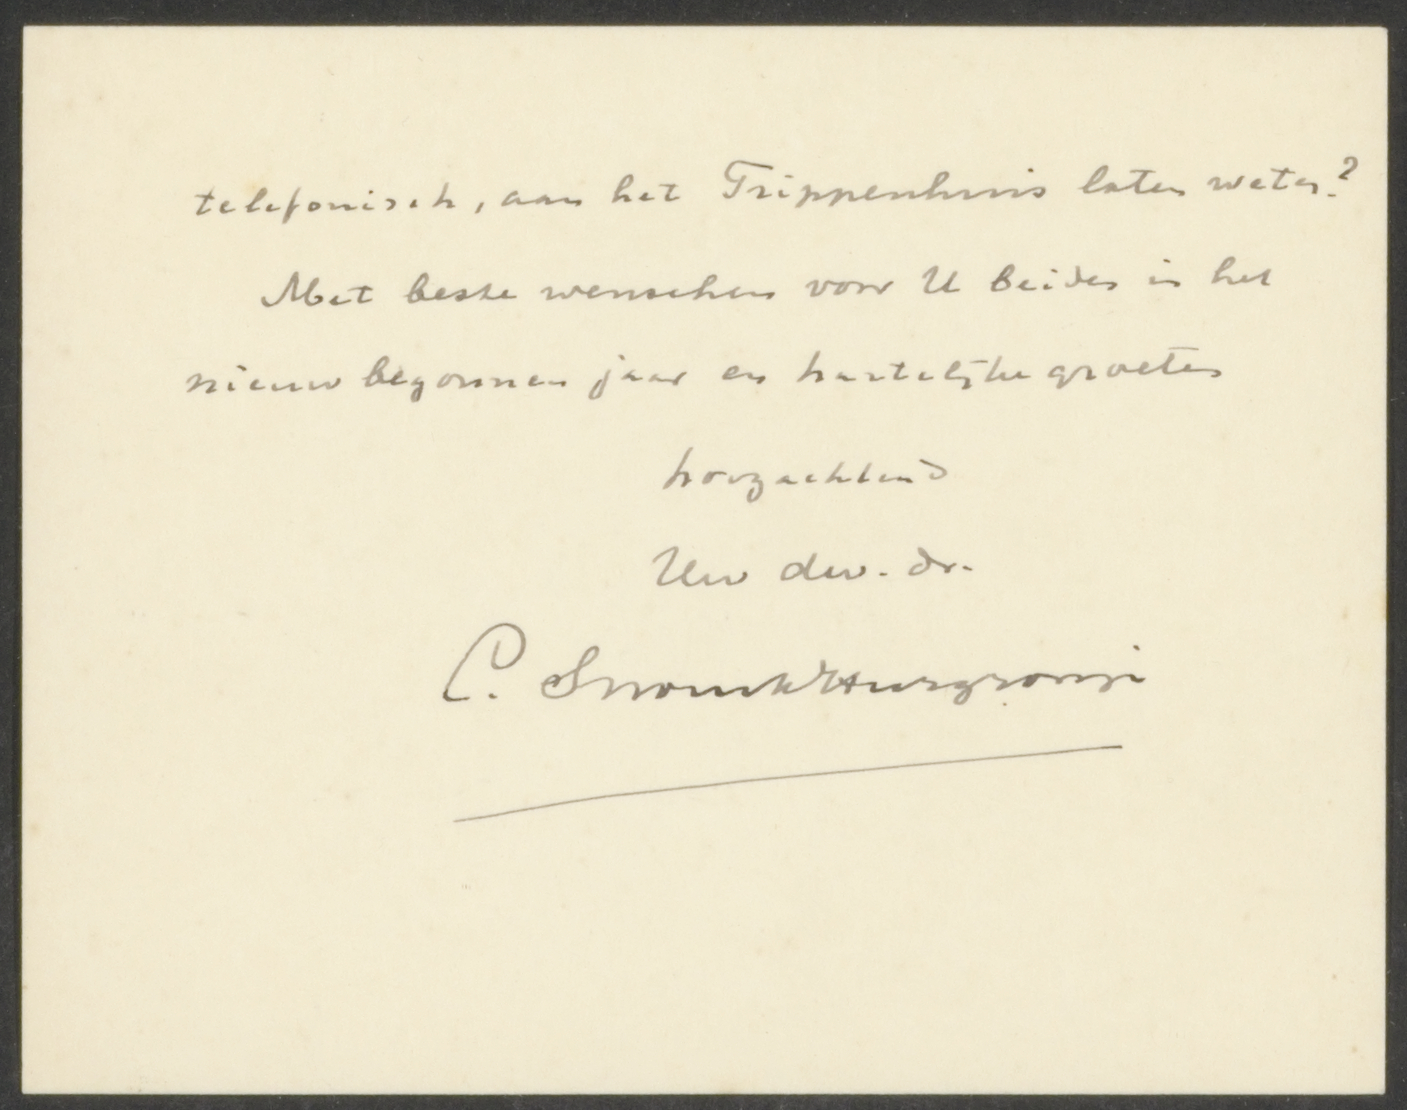 telefonisch, aan het Trippenhuis laten weten?
Met beste wenschen voor U beiden in het
nieuw begonnen jaar en hartelijke groeten
hoogachtend
Uw dw. dr.
C. Snouck Hurgronje